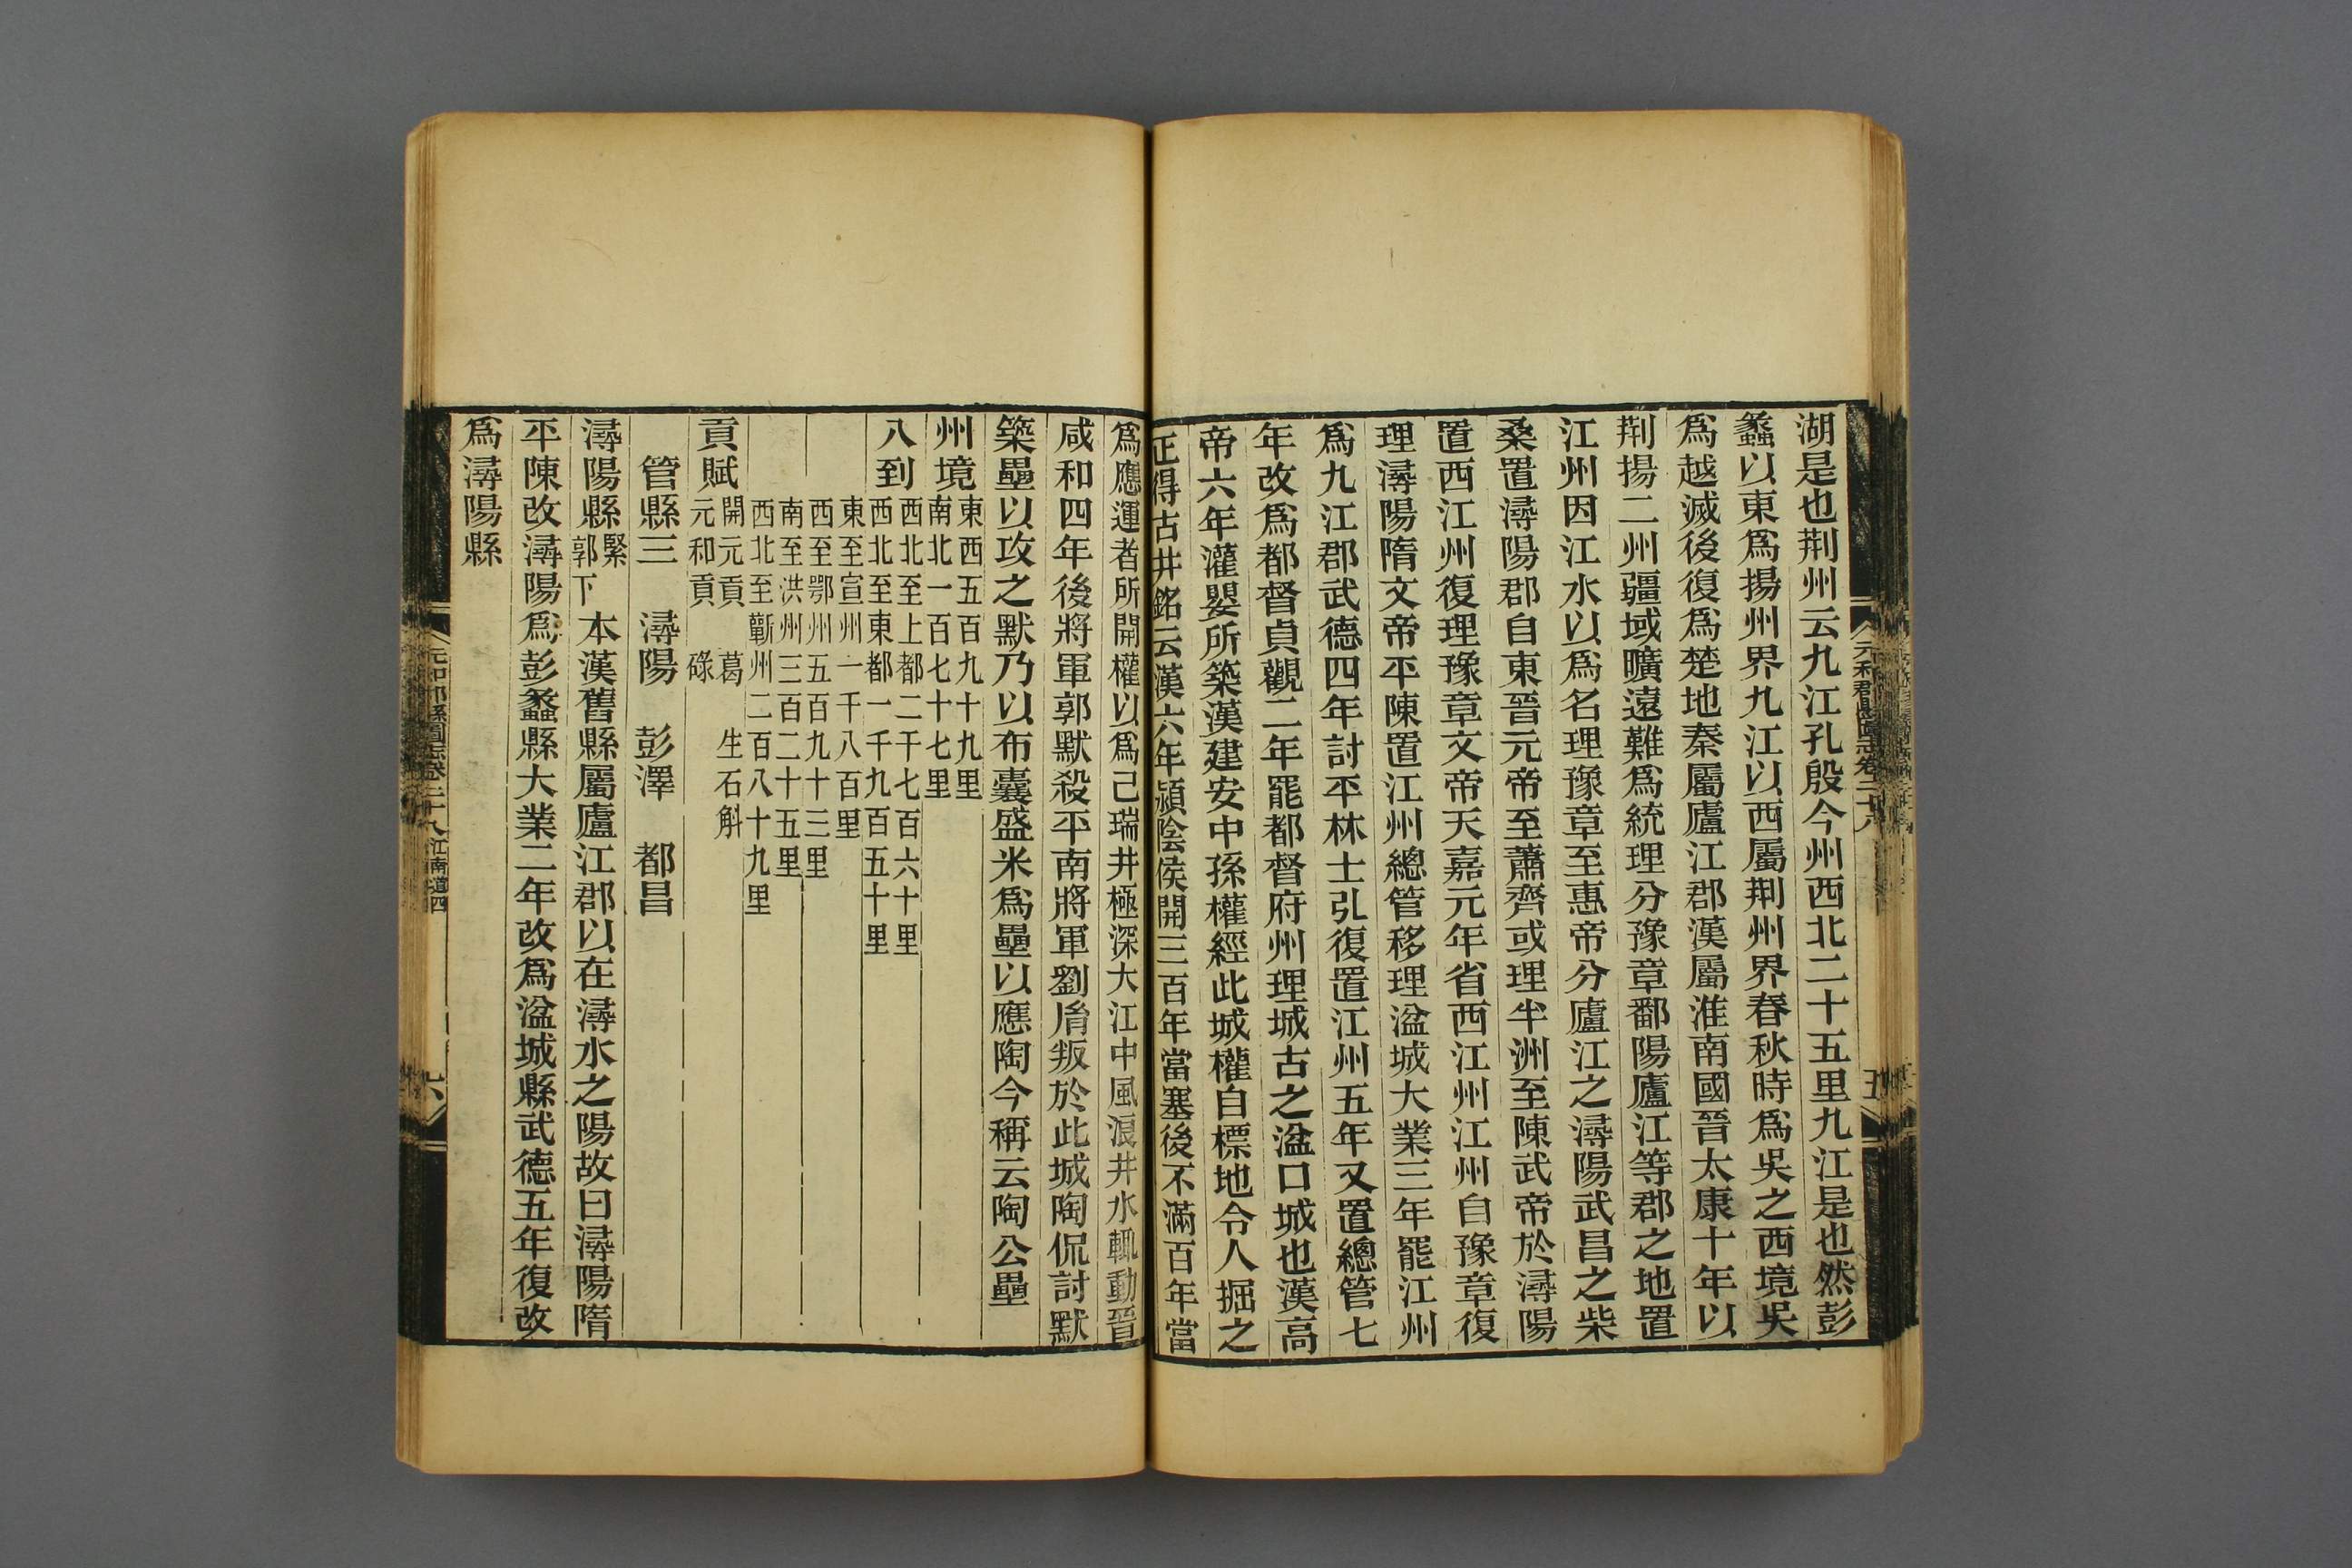 湖是也荆州云九江孔殷今州西北二十五里九江是也然彭
蠡以東爲揚州界九江以西屬荆州界春秋時爲吳之西境吳
爲越滅後復爲楚地秦屬廬江郡漢屬淮南國晉太康十年以
荆揚二州疆域曠遠難爲統理分豫章鄱陽廬江等郡之地置
江州因江水以爲名理豫章至惠帝分廬江之潯陽武昌之柴
桑置潯陽郡自東晉元帝至蕭齊或理半洲至陳武帝於潯陽
置西江州復理豫章文帝天嘉元年省西江州江州自豫章復
理潯陽隋文帝平陳置江州總管移理湓城大業三年罷江州
爲九江郡武德四年討平林士弘復置江州五年又置總管七
年改爲都督貞觀二年罷都督府州理城古之湓口城也漢高
帝六年灌嬰所築漢建安中孫權經此城權自標地令人掘之
正得古井銘云漢六年潁陰侯開三百年當塞後不滿百年當
爲應運者所開權以爲己瑞井極深大江中風浪井水輒動晉
咸和四年後將軍郭默殺平南將軍劉胤叛於此城陶侃討默
築壘以攻之默乃以布囊盛米爲壘以應陶今稱云陶公壘
州境東西五百九十九里
南北一百七十七里
八到西北至上都二千七百六十里
西北至東都一千九百五十里
東至宣州一千八百里
西至鄂州五百九十三里
南至洪州三百二十五里
西北至蘄州二百八十九里
貢賦開元貢　葛　生石斛
元和貢　碌
管縣三　潯陽　彭澤　都昌
潯陽縣緊郭下本漢舊縣屬廬江郡以在潯水之陽故曰潯陽隋
平陳改潯陽爲彭蠡縣大業二年改爲湓城縣武德五年復改
爲潯陽縣
元和郡縣圖志卷二十八
五
元和郡縣圖志卷二十八江南道四
六